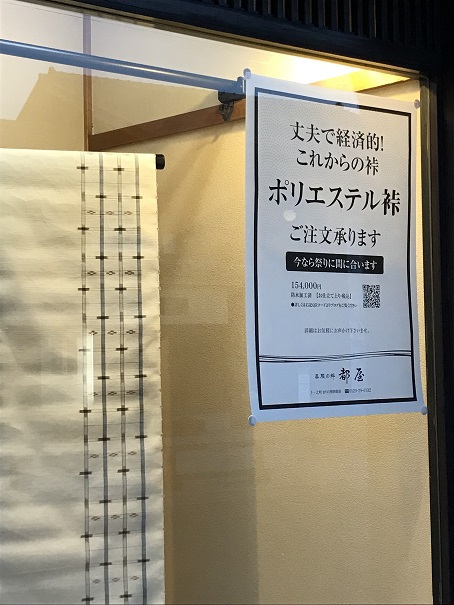 丈夫で経済的!
これからの裃
ポリエステル裃
ご注文承ります
今なら祭りに間に合います
154,000円
防水加工済 【お仕立て上り・税込】
詳細はお気軽にお声かけ下さいませ。
都屋